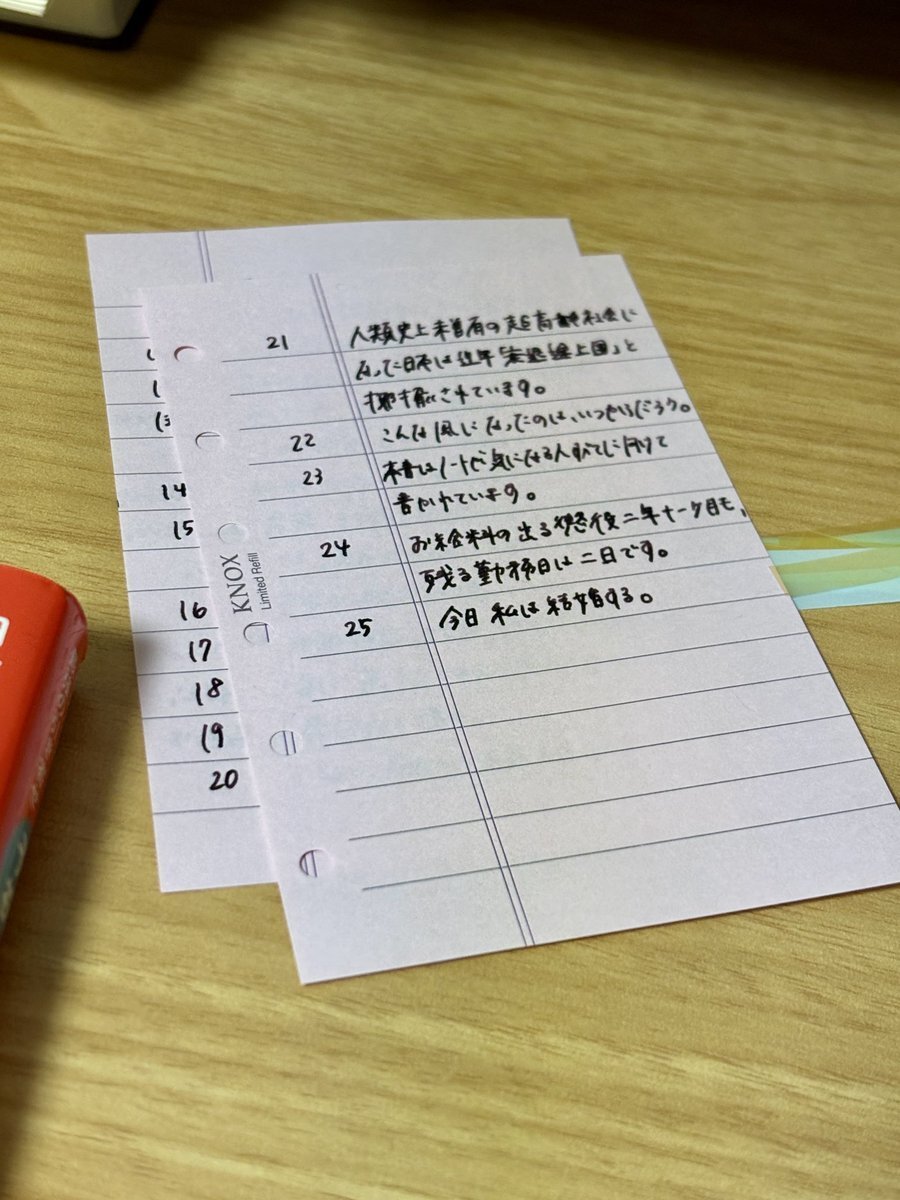 21 人類史上未曽有の超高齢社会に
なった日本は近年「衰退途上国」と
揶揄されています。
22 こんな風になったのは、いつからだろう。
23 本書はノートが気になる人すべてに向けて
書かれています。
24 お給料の出る最後二年十一ヶ月も、
残る勤務日は二日です。
25 今日 私は結婚する。
KNOX
Limited Refill
14
15
16
17
18
19
20